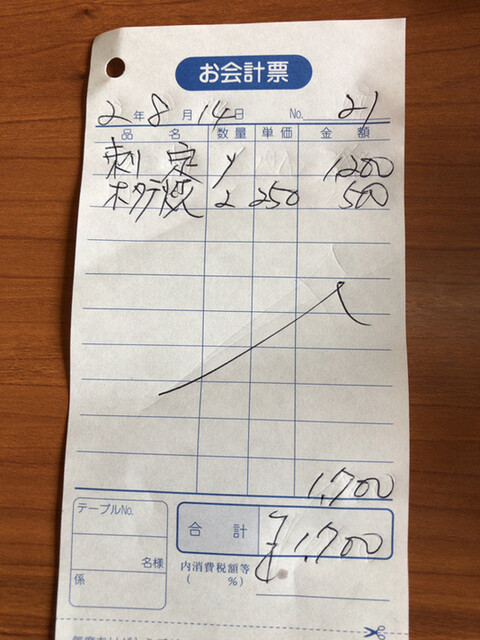 お会計票
2年8月14日 No. 21
品名 数量 単価 金額
刺定 1 1,200
ホタテ焼 2 250 500
1,700
テーブルNo.
合計 ¥1,700
名様
内消費税額等
( %)
係